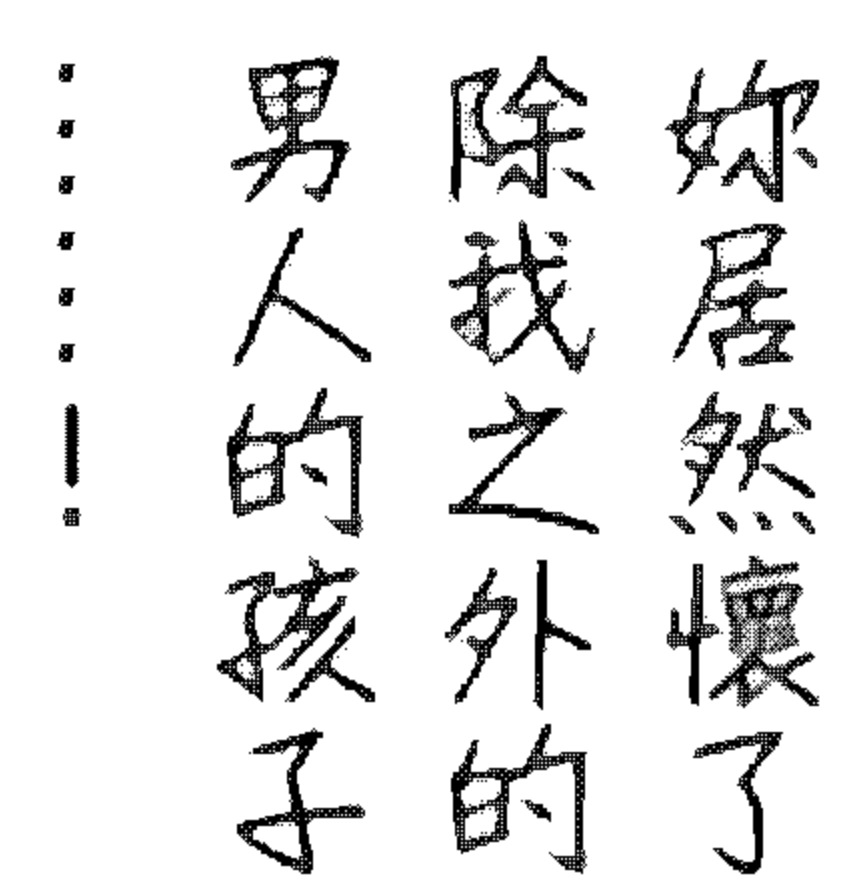 妳居然懷了
除我之外的
男人的孩子
……！